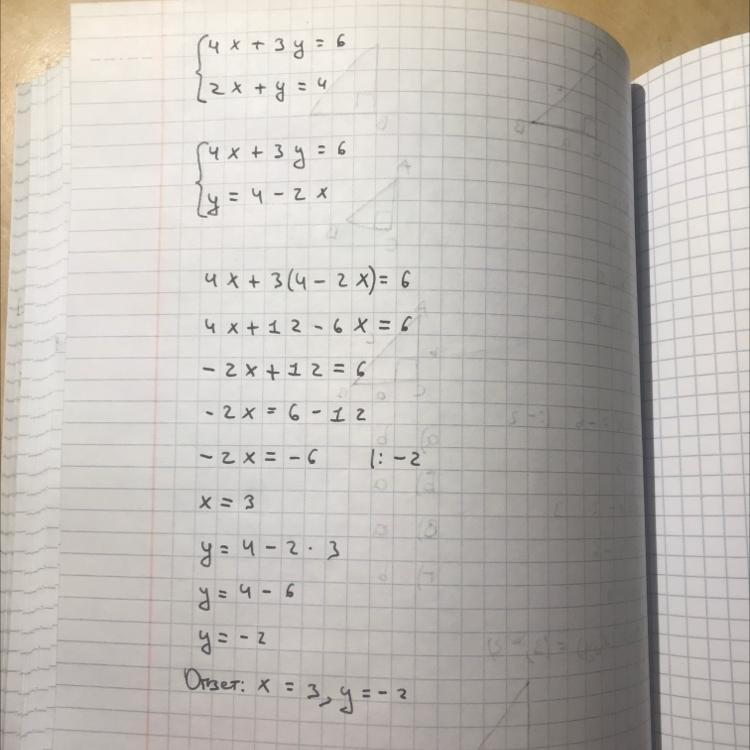 4x + 3y = 6
2x + y = 4
4x + 3y = 6
y = 4 - 2x
4x + 3(4 - 2x) = 6
4x + 12 - 6x = 6
-2x + 12 = 6
-2x = 6 - 12
-2x = -6 |: -2
x = 3
y = 4 - 2 · 3
y = 4 - 6
y = -2
Ответ: x = 3, y = -2